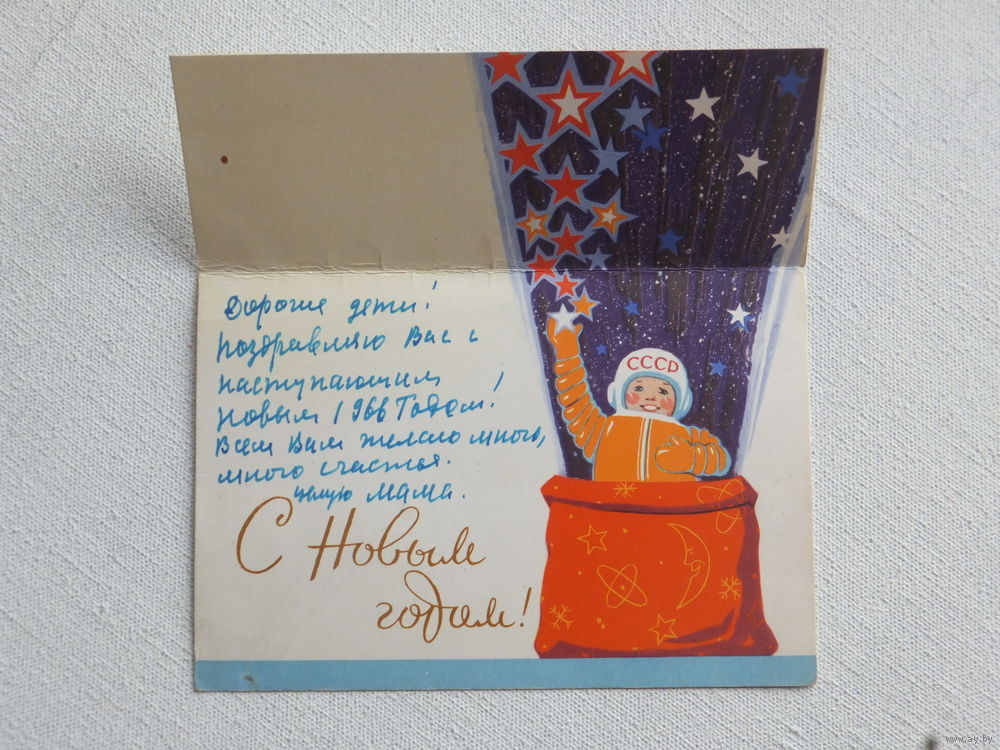 СССР
Дорогие дети!
Поздравляю Вас с
наступающим
Новым 1966 Годом!
Всем Вам желаю много,
много счастья.
целую мама.
С Новым
годом!
www.ay.by